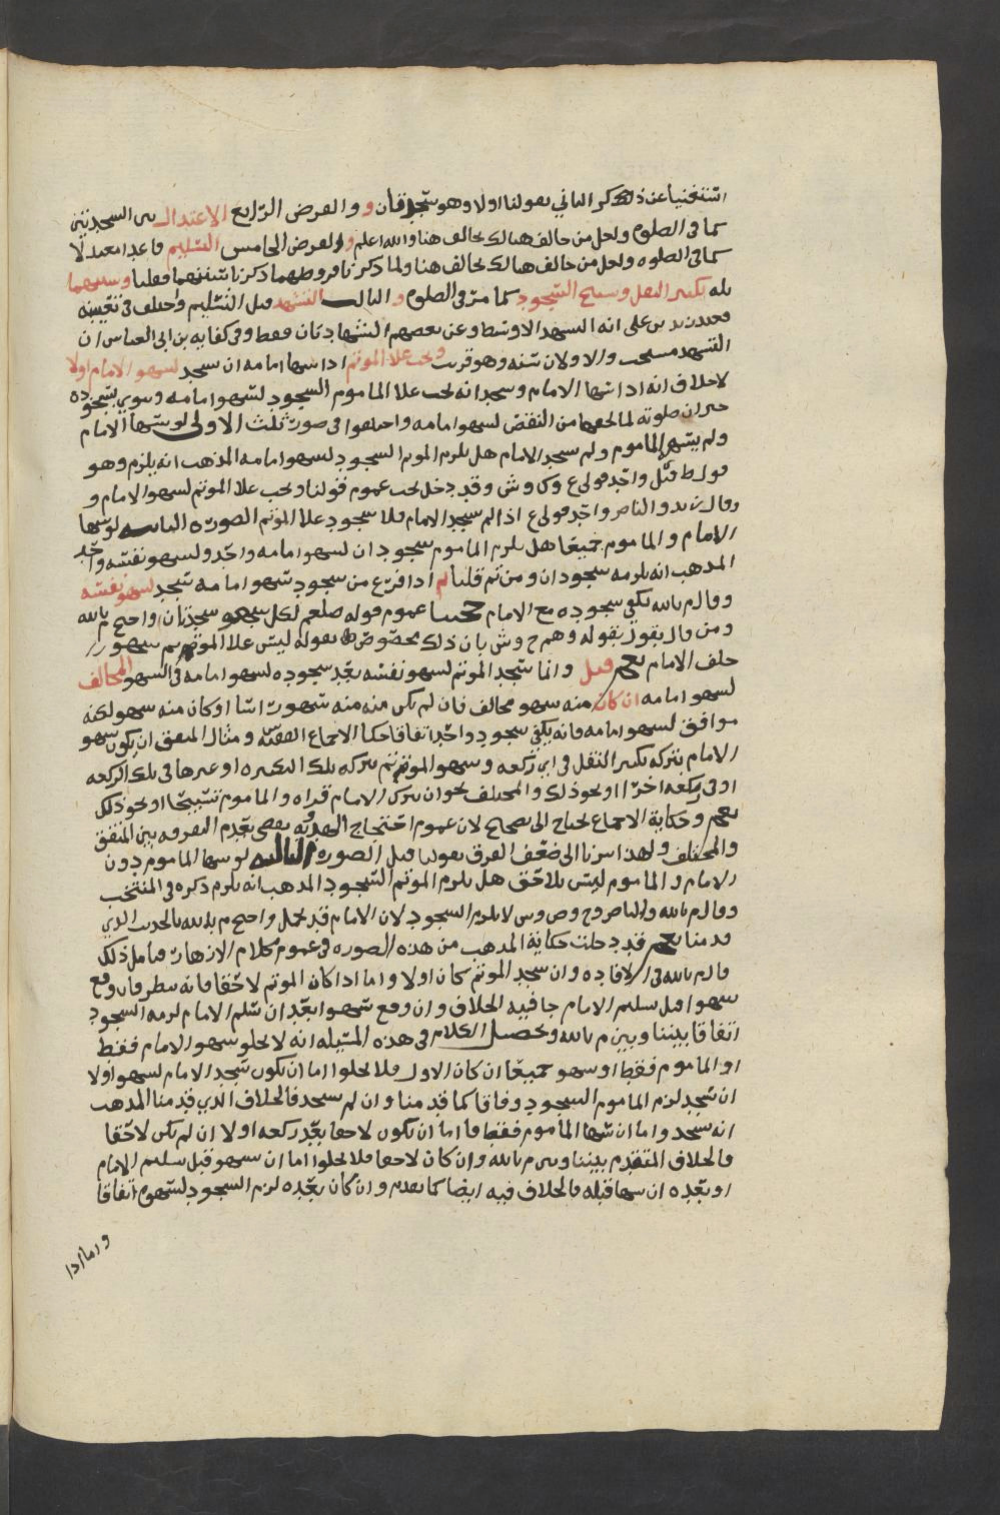 استغنينا عن ذكر الثاني بقولنا اولا وهو سجدتان و والفرض الرابع الاعتدال بين السجدتين
كما في الصلوه ولعل من خالف هنالك خالف هنا والله اعلم و والفرض الخامس التسليم قاعدا معتدلا
كما في الصلوه ولعل من خالف هنالك خالف هنا ولما ذكرنا فروضهما ذكرنا سننهما فقلنا وسننهما
تكبير النقل وتسبيح السجود كما مر في الصلوه و الثالث التشهد قبل التسليم واختلف في تعيينه
على انه التشهد الاوسط وعن بعضهم الشهادتان فقط وفي كفايه بن ابي العباس ان
التشهد مستحب والاولان سنه وهو قريب ويجب علا الموتم اذا سها امامه ان يسجد لسهو الامام اولا
لا خلاف انه اذا سها الامام وسجد انه يجب علا الماموم السجود لسهو امامه وينوي بسجوده
جبران صلوته لما لحقها من النقص لسهو امامه واختلفوا في صور ثلث الاولى لو سها الامام
ولم يسه الماموم ولم يسجد الامام هل يلزم الموتم السجود لسهو امامه المذهب انه يلزم وهو
قول ط واحد قولي ع وك وش وقد دخل تحت عموم قولنا ويجب علا الموتم لسهو الامام و
وقال والناصر واحد قولي ع اذا لم يسجد الامام فلا سجود علا الموتم الصوره الثانيه لو سها
الامام والماموم جميعا هل يلزم الماموم سجودان لسهو امامه واحد ولسهو نفسه واحد
المذهب انه يلزمه سجودان ومن ثم قلنا ثم اذا فرغ من سجود سهو امامه سجد لسهو نفسه
وقال م بالله يكفي سجوده مع الامام عموم قوله صلعم لكل سهو سجدتان واحتج م بالله
ومن قال بقوله وهم ح وش بان ذلك مخصوص بقوله ليس علا الموتم سهو
خلف الامام قيل وانما يسجد الموتم لسهو نفسه بعد سجوده لسهو امامه في السهو المخالف
لسهو امامه ان كان منه سهو مخالف فان لم يكن منه سهو راسا او كان منه سهو لكنه
موافق لسهو امامه فانه يكفي سجود واحد اتفاقا حكا الاجماع الفقيه ومثال المتفق ان يكون سهو
الامام بتركه تكبير النقل في اي ركعه وسهو الموتم بتركه تلك التكبيره او غيرها في تلك الركعه
او في ركعه اخرا او نحو ذلك والمختلف نحو ان يترك الامام قراه والماموم تسبيحا او نحو ذلك
وحكاية الاجماع تحتاج الى تصحيح لان عموم احتجاج الهدويه يقضي بعدم التفرقه بين المتفق
والمختلف ولهذا اشرنا الى ضعف الفرق بقولنا قيل الصوره الثالثه لو سها الماموم دون
الامام والماموم ليس بلاحق هل يلزم الموتم السجود المذهب انه يلزم ذكره في المنتخب
وقال م بالله والناصر وح وص وش لا يلزم السجود لان الامام قد تحمل واحتج م بالله بالحديث الذي
قدمنا قد دخلت حكاية المذهب من هذه الصوره في عموم كلام الازهار فتامل ذلك
قال م بالله في الافاده وان سجد الموتم كان اولا واما اذا كان الموتم لاحقا فانه ينظر فان وقع
سهوا قبل تسليم الامام جا فيه الخلاف وان وقع سهوا بعد ان سلم الامام لزمه السجود
اتفاقا بيننا وبين م بالله وتحصيل الكلام في هذه المسئله انه لا يخلو سهو الامام فقط
او الماموم فقط او سهو جميعا ان كان الاول فلا يخلوا اما ان يكون سجد الامام لسهو اولا
ان سجد لزم الماموم السجود وفاقا كما قدمنا وان لم يسجد فالخلاف الذي قدمنا المذهب
انه يسجد واما ان سها الماموم فقط فاما ان يكون لاحقا بعد ركعه اولا ان لم يكن لاحقا
فالخلاف المتقدم بيننا وبين م بالله وان كان لاحقا فلا يخلوا اما ان يسهو قبل تسليم الامام
او بعده ان سها قبله فالخلاف فيه ايضا كما تقدم وان كان بعده لزم السجود لسهوه اتفاقا